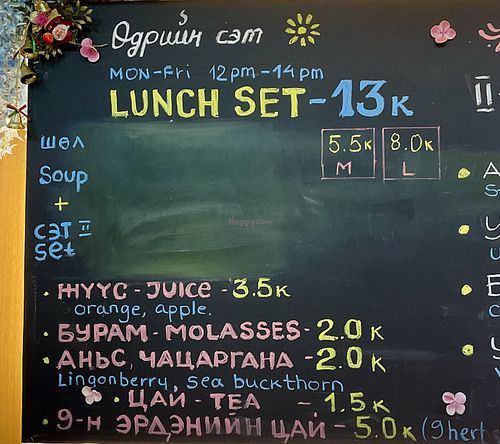 Өдрийн сэт
MON-Fri 12pm-14pm
LUNCH SET - 13K
шөл
Soup
+
сэт II
set
5.5K 8.0K
M L
HappyCow
• ЖҮҮС - JUICE - 3.5K
orange, apple.
• БУРАМ - MOLASSES - 2.0K
• АНЬС, ЧАЦАРГАНА - 2.0K
Lingonberry, sea buckthorn
• ЦАЙ - TEA - 1.5K
• 9-Н ЭРДЭНИЙН ЦАЙ - 5.0K (9 her
II